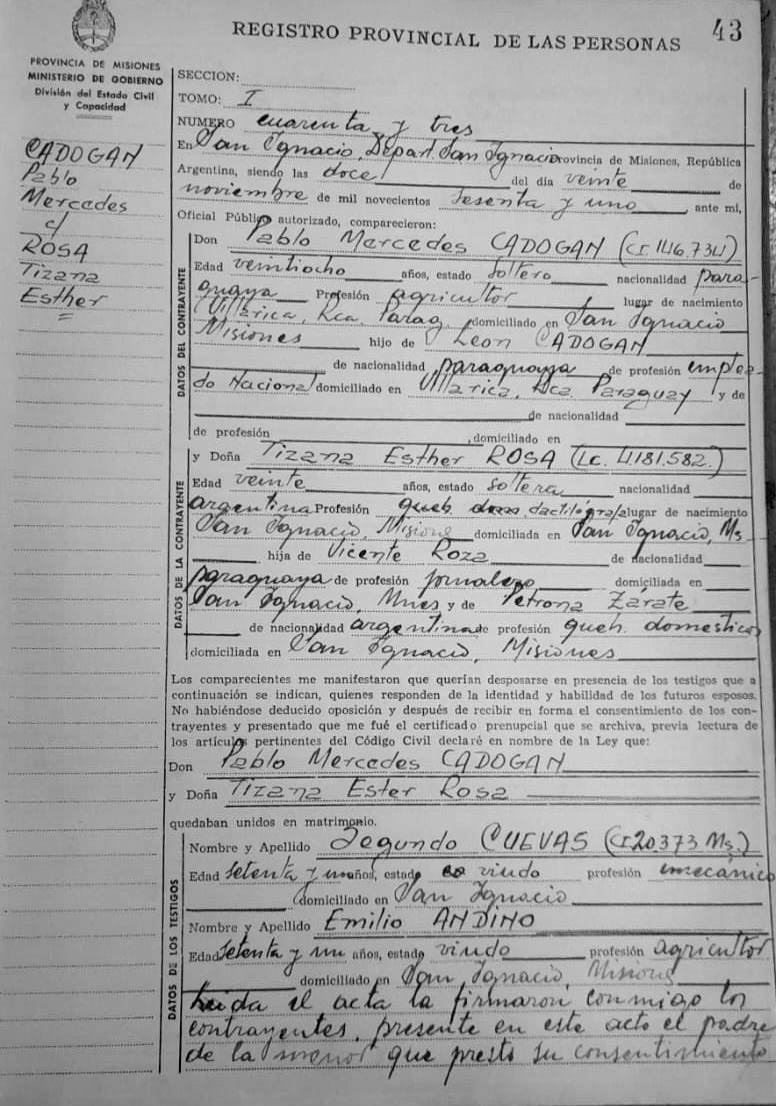 REGISTRO PROVINCIAL DE LAS PERSONAS 43
PROVINCIA DE MISIONES
MINISTERIO DE GOBIERNO
División del Estado Civil
y Capacidad
CADOGAN
Pablo
Mercedes
c/
ROSA
Tizana
Esther
SECCION:
TOMO: I
NUMERO cuarenta y tres
En San Ignacio, Depart. San Ignacio provincia de Misiones, República
Argentina, siendo las doce del día veinte de
noviembre de mil novecientos sesenta y uno, ante mi,
Oficial Público autorizado, comparecieron:
DATOS DEL CONTRAYENTE
Don Pablo Mercedes CADOGAN (CI. 146.734)
Edad veintiocho años, estado soltero nacionalidad para-
guaya Profesión agricultor lugar de nacimiento
Villarica, Rca. Parag. domiciliado en San Ignacio
Misiones hijo de Leon CADOGAN
de nacionalidad paraguaya de profesión emplea-
do Nacional domiciliado en Villarica, Rca. Paraguay y de
de nacionalidad
de profesión , domiciliado en
DATOS DE LA CONTRAYENTE
y Doña Tizana Esther ROSA (LC. 4.181.582.)
Edad veinte años, estado soltera nacionalidad
argentina Profesión queh. dactilógrafa lugar de nacimiento
San Ignacio, Misiones domiciliada en San Ignacio, Ms
hija de Vicente Roza de nacionalidad
paraguaya de profesión jornalero domiciliado en
San Ignacio, Mnes y de Petrona Zárate
de nacionalidad argentina de profesión queh. domesticos
domiciliada en San Ignacio, Misiones
Los comparecientes me manifestaron que querían desposarse en presencia de los testigos que a
continuación se indican, quienes responden de la identidad y habilidad de los futuros esposos.
No habiéndose deducido oposición y después de recibir en forma el consentimiento de los con-
trayentes y presentado que me fué el certificado prenupcial que se archiva, previa lectura de
los artículos pertinentes del Código Civil declaré en nombre de la Ley que:
Don Pablo Mercedes CADOGAN
y Doña Tizana Ester Rosa
quedaban unidos en matrimonio.
DATOS DE LOS TESTIGOS
Nombre y Apellido Segundo CUEVAS (CI 20.373 Ms.)
Edad setenta y un años, estado viudo profesión mecánico
domiciliado en San Ignacio
Nombre y Apellido Emilio ANDINO
Edad setenta y un años, estado viudo profesión agricultor
domiciliado en San Ignacio, Misiones
Leida el acta la firmaron conmigo los
contrayentes, presente en este acto el padre
de la menor que presto su consentimiento